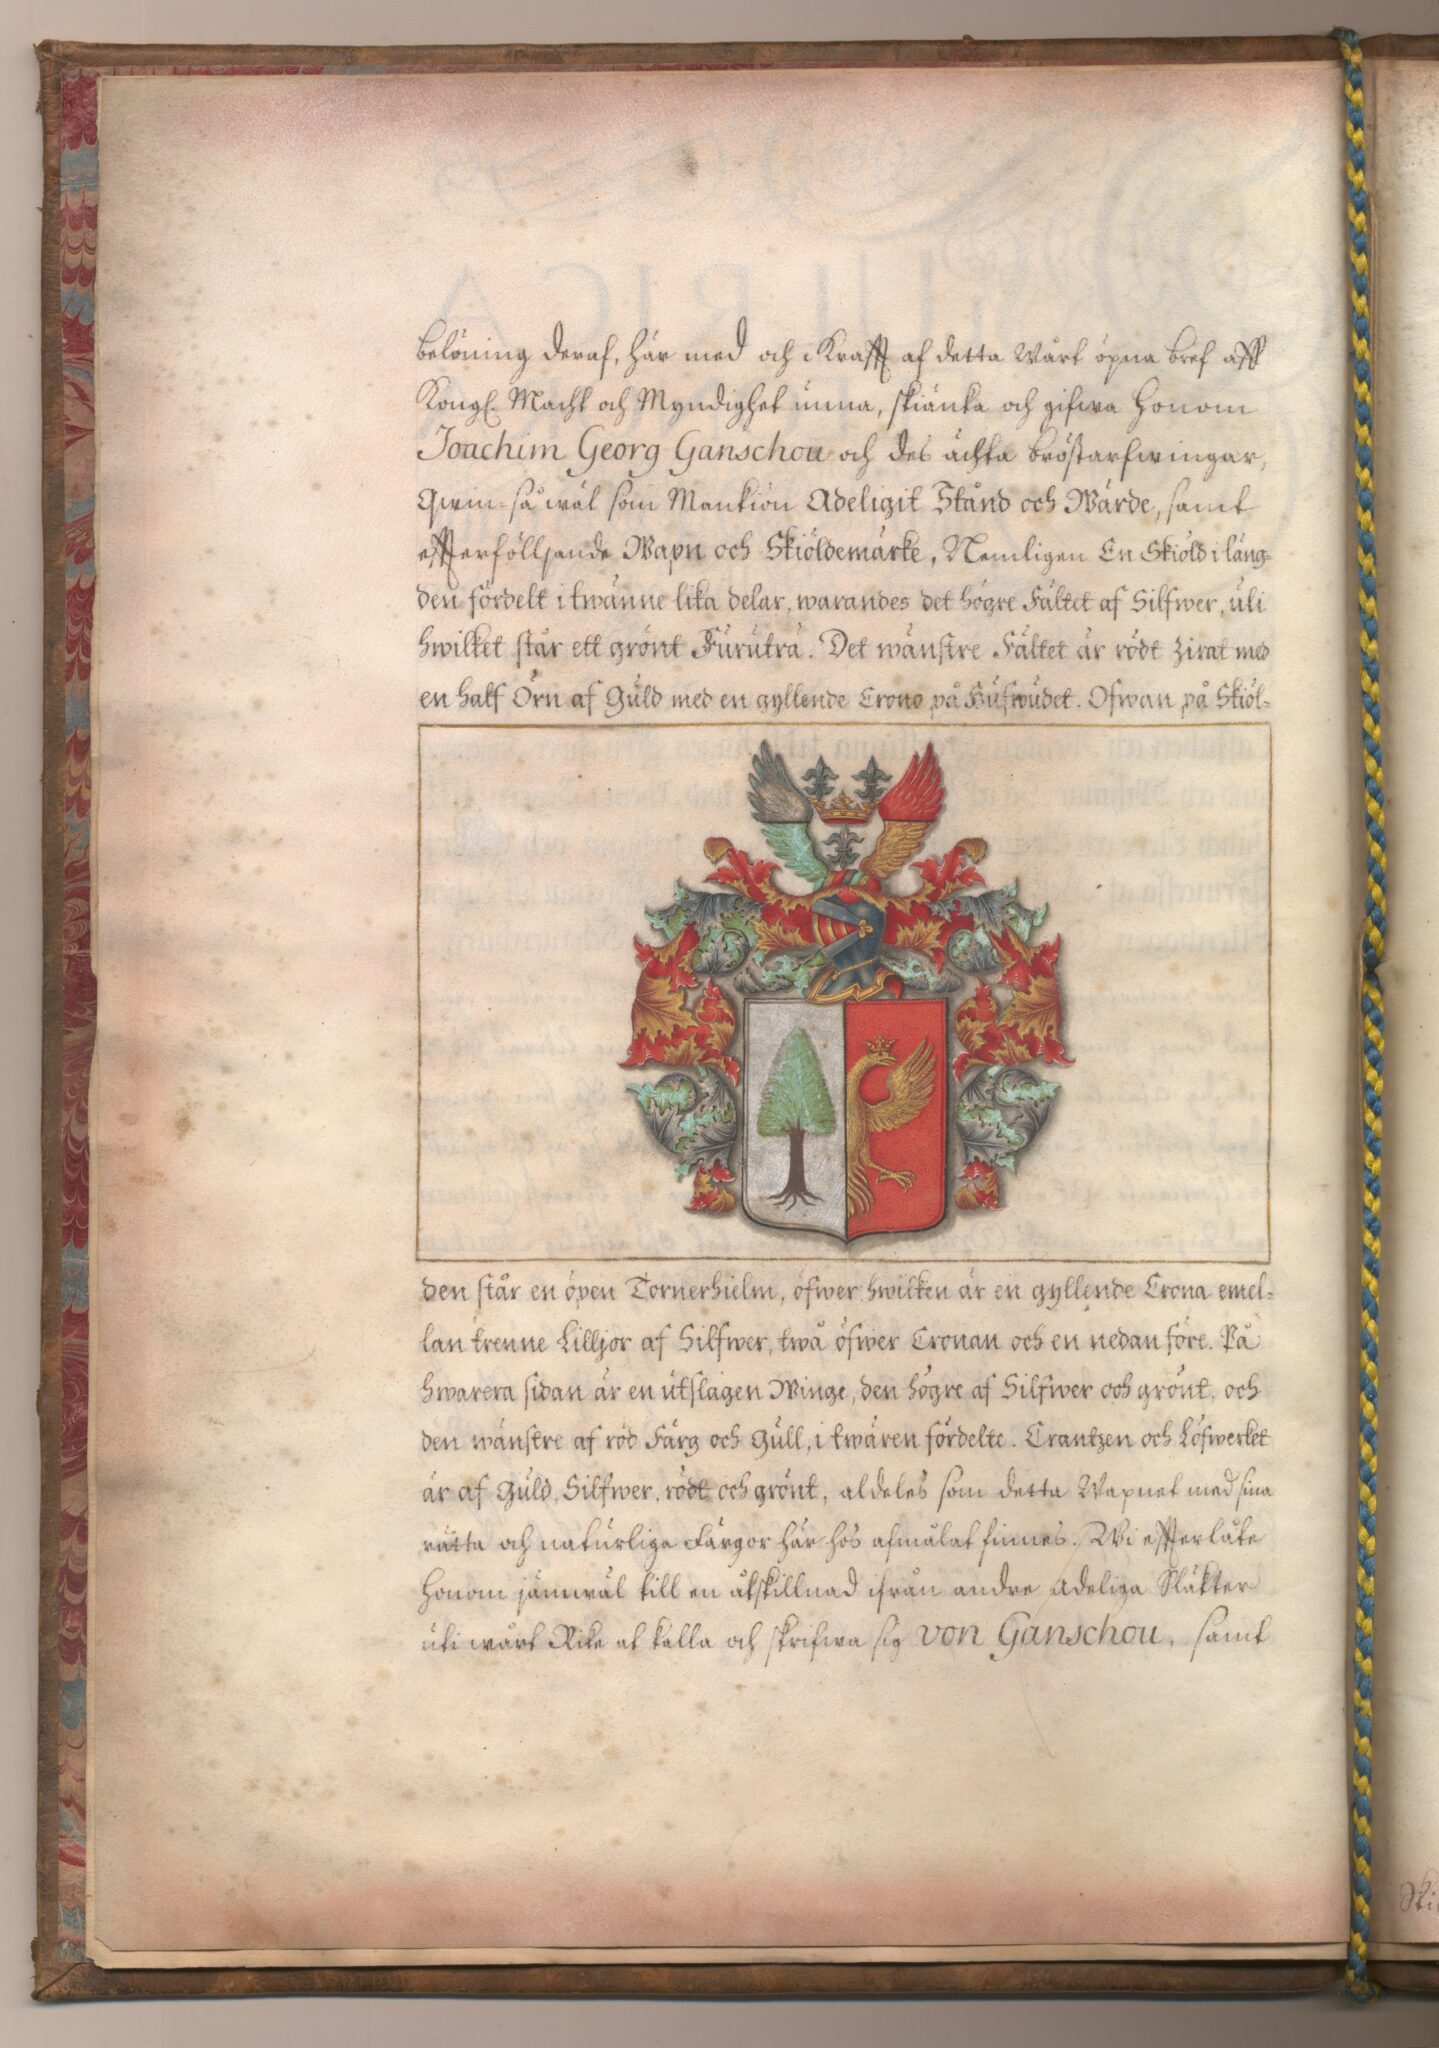 belöning deraf, här med och i Krafft af detta Wårt öpna bref aff
Kongl. Macht och Myndighet unna, skiänka och gifwa Honom
Joachim Georg Ganschou och des ächta bröstarfwingar,
Qwin-så wäl som Mankiön Adeligit Stånd och Wärde, samt
effterfölljande Wapn och Skiöldemärke, Nemligen En Skiöld i läng-
den fördelt i twänne lika delar, warandes det högre Fältet af Silfwer, uti
hwilket står ett grönt Furuträ. Det wänstre Fältet är rödt Zirat med
en half Örn af Guld med en gyllende Crono på Hufwudet. Ofwan på Skiöl-
den står en öpen Tornerhielm, öfwer hwilken är en gyllende Crona emel-
lan trenne Lilljor af Silfwer, twå öfwer Cronan och en nedan före. På
hwarera sidan är en utslagen Winge, den högre af Silfwer och grönt, och
den wänstre af röd Färg och Gull, i twären fördelte. Crantzen och Löfwerket
är af Guld, Silfwer, rödt och grönt, aldeles som detta Wapnet med sina
rätta och naturliga Färgor här hos afmålat finnes. Wi effterlåte
Honom jämwäl till en åtskillnad ifrån andre Adeliga Släkter
uti wårt Rike at kalla och skrifwa sig von Ganschou, samt